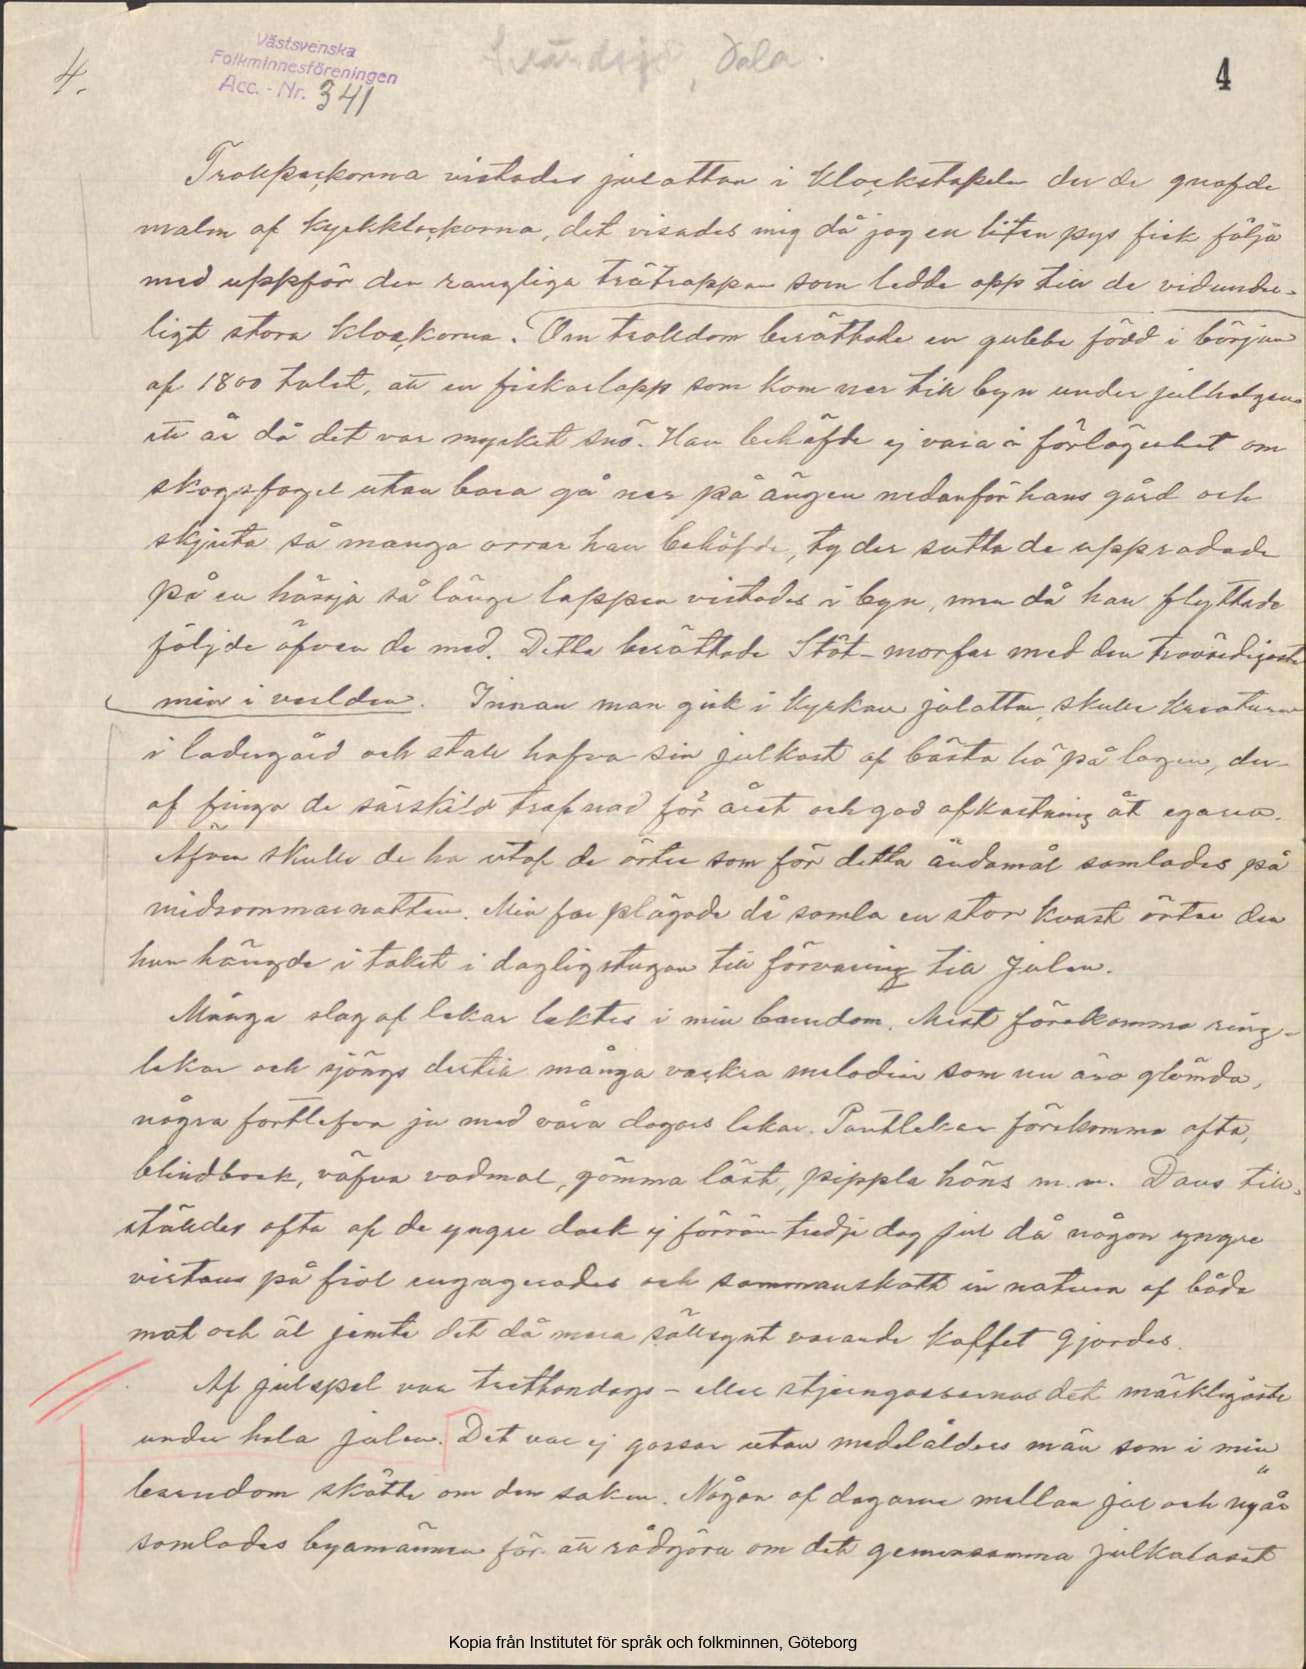 4.
Västsvenska
Folkminnesföreningen
Acc. - Nr. 341
Svärdsjö, Dala.
4
Trollpackorna vistades julottan i klockstapeln der de gnafde
malm af kyrkklockorna, det visades mig då jag en liten pys fick följa
med uppför den rangliga trätrappan som ledde opp till de vidunder-
ligt stora klockorna. Om trolldom berättade en gubbe född i början
af 1800 talet, att en fiskarlapp som kom ner till byn under julhelgen
ett år då det var mycket snö. Han behöfde ej vara i förlägenhet om
skogsfogel utan bara gå ner på ängen nedanför hans gård och
skjuta så många orrar han behöfde, ty der sutto de uppradade
på en hässja så länge lappen vistades i byn, men då han flyttade
följde äfven de med. Detta berättade Stöt-morfar med den trovärdigaste
min i verlden. Innan man gick i kyrkan julottan, skulle kreaturen
i ladugård och stall hafva sin julkost af bästa hö på logen, der-
af finga de särskild trefnad för året och god afkastning åt egaren.
Äfven skulle de ha utaf de örter som för detta ändamål samlades på
midsommarnatten. Min far plägade då samla en stor kvast örter den
han hängde i taket i dagligstugan till förvaring till julen.
Många slag af lekar lektes i min barndom. Mest förekommo ring-
lekar och sjöngs dertill många vackra melodier som nu äro glömda,
några fortlefva ju med våra dagars lekar. Pantlekar förekommo ofta,
blindbock, väfva vadmal, gömma låst, pippla höns m.m. Dans till-
ställdes ofta af de yngre dock ej förrän tredje dag jul då någon yngre
virtuos på fiol engagerades och sammanskott in natura af både
mat och öl jemte det då mera sällsynt varande kaffet gjordes.
Af julspel var trettondags- eller stjerngossarnas det märkligaste
under hela julen. Det var ej gossar utan medelålders män som i min
barndom skötte om den saken. Någon af dagarne mellan jul och nyår
samlades byamännen för att rådgöra om det gemensamma julkalaset
Kopia från Institutet för språk och folkminnen, Göteborg